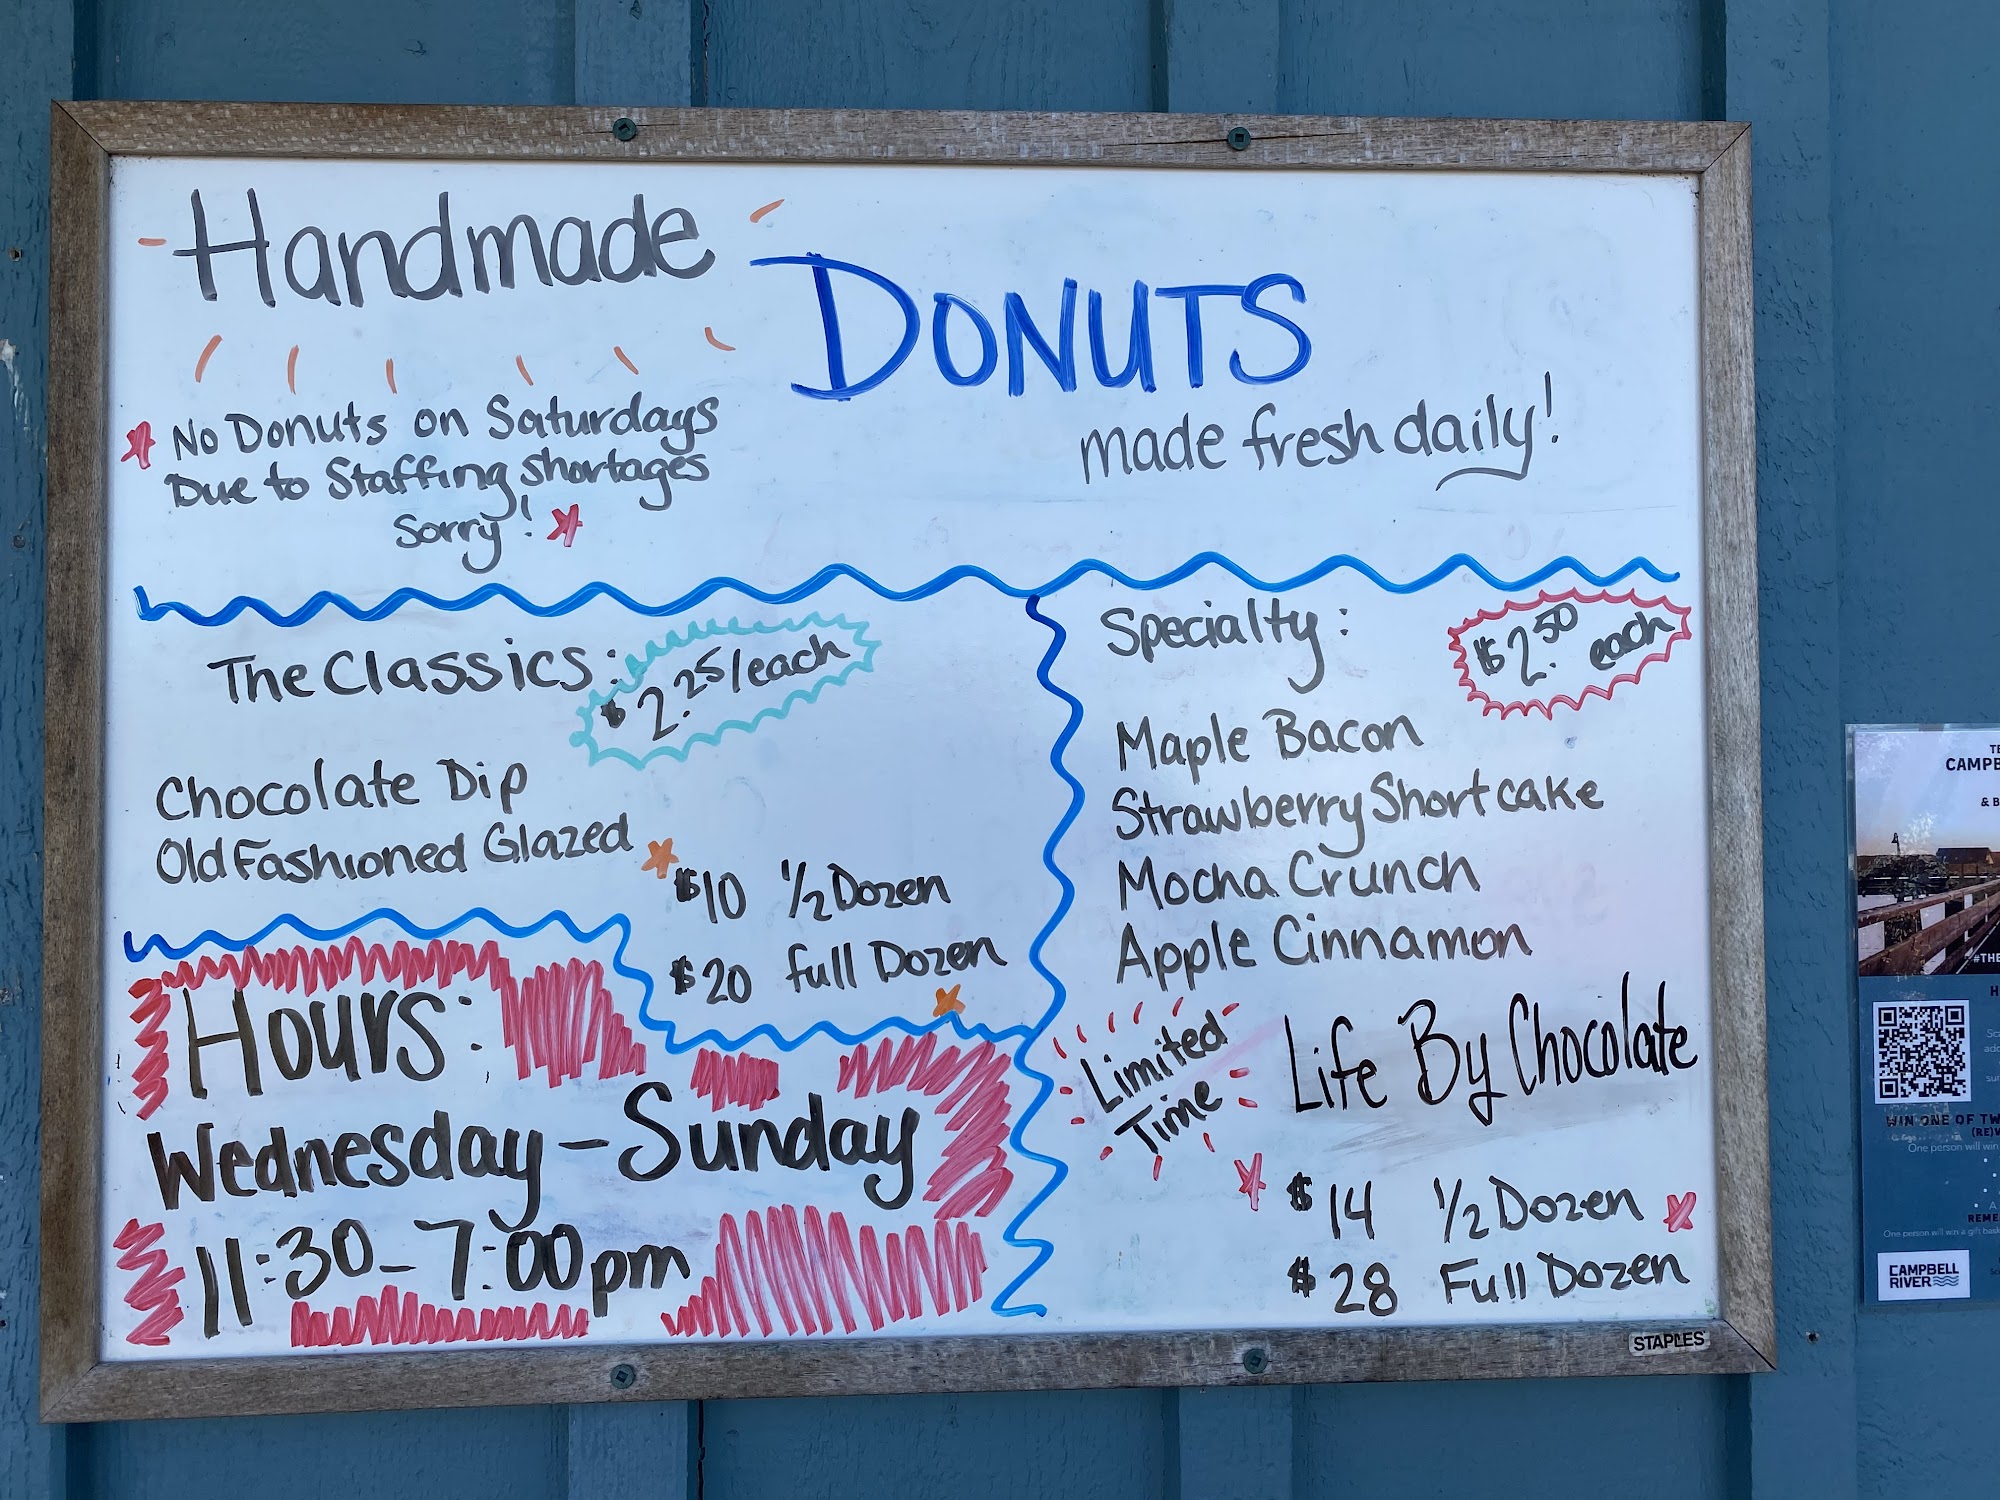 Handmade
DONUTS
made fresh daily!
No Donuts on Saturdays
Due to Staffing shortages
Sorry!
The Classics: $2.25/each
Chocolate Dip
Old Fashioned Glazed
$10 1/2 Dozen
$20 full Dozen
Hours:
Wednesday - Sunday
11:30 - 7:00pm
Specialty: $2.50 each
Maple Bacon
Strawberry Shortcake
Mocha Crunch
Apple Cinnamon
Limited Time Life By Chocolate
$14 1/2 Dozen
$28 Full Dozen
STAPLES
& B
WIN ONE OF TW
One person will win
One person will win a gift bask
CAMPBELL
RIVER